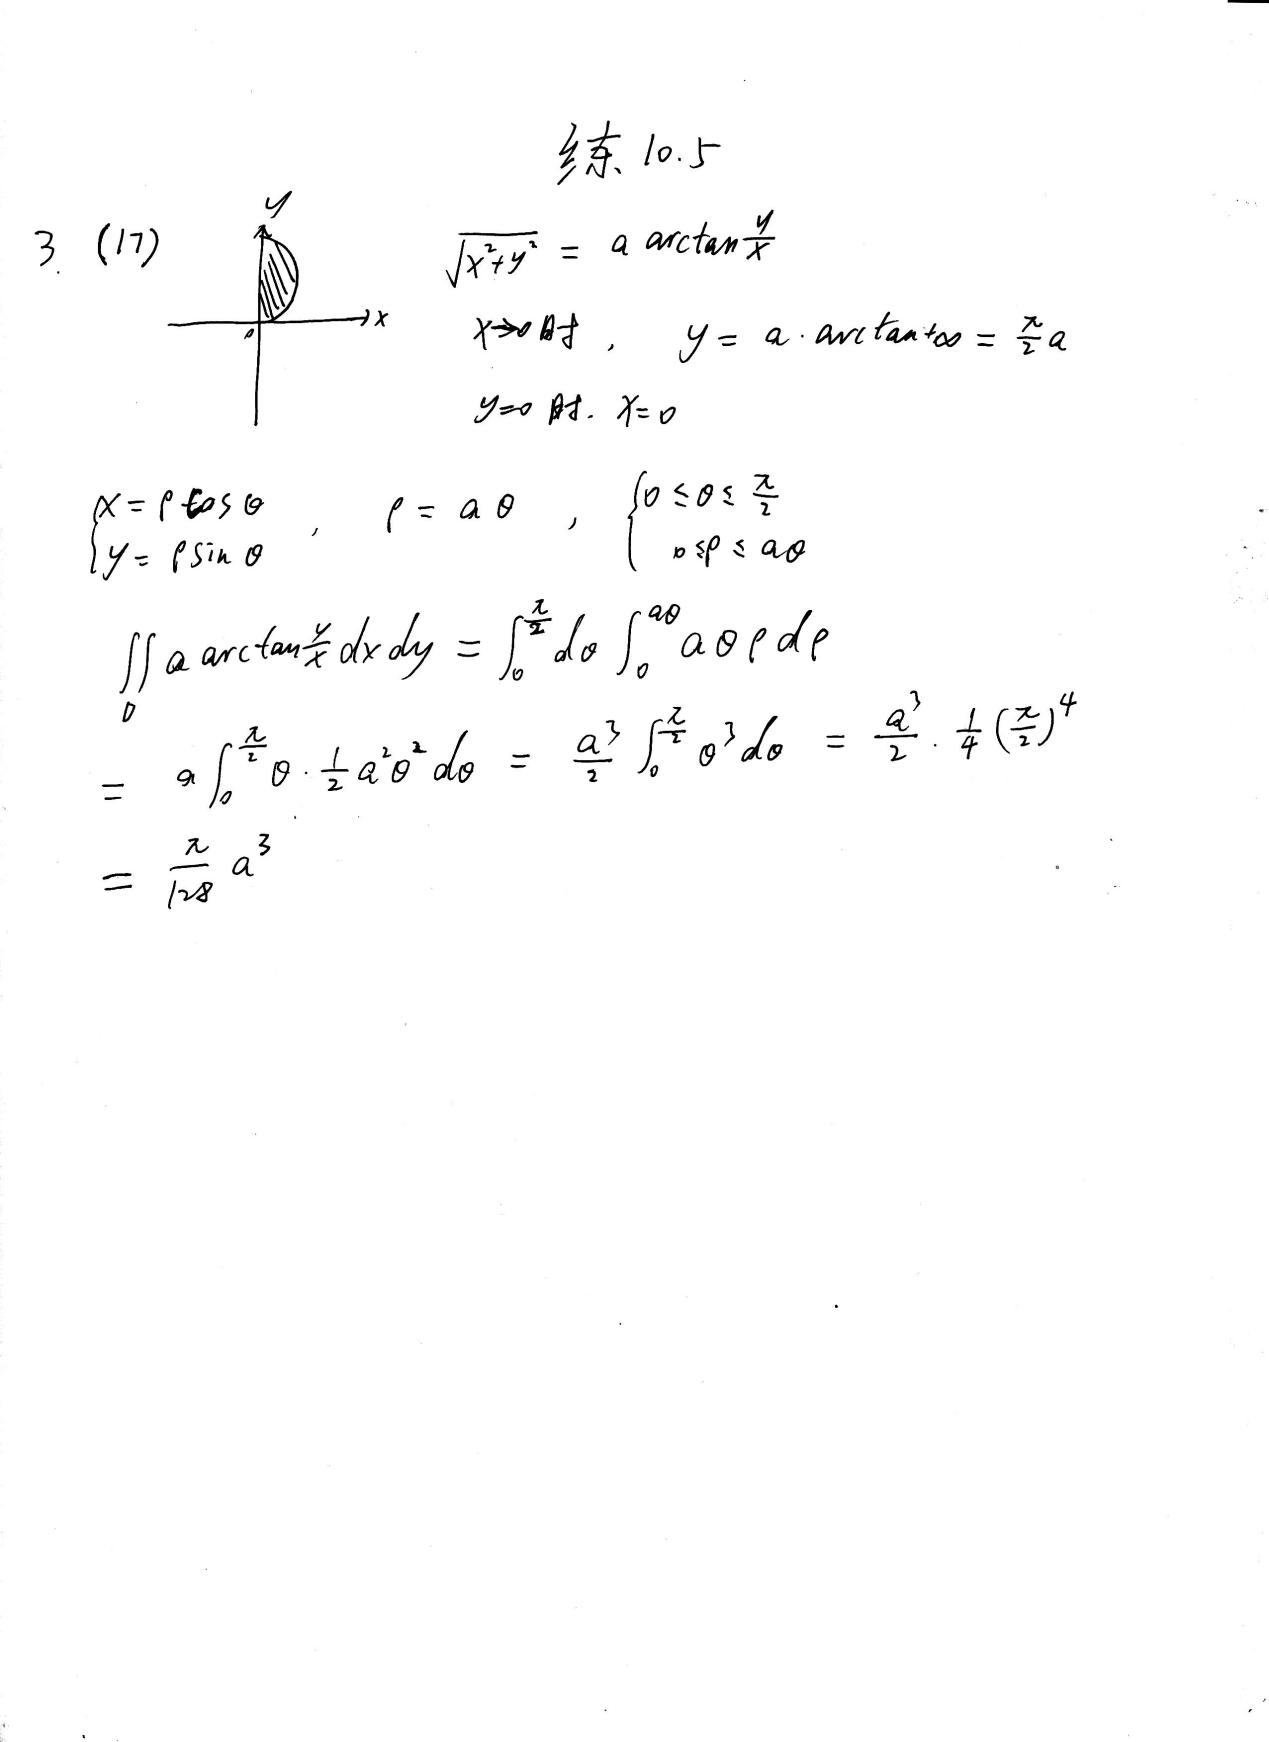 练 10.5
3. (17) y x 0 √(x²+y²) = a arctan y/x
x→0时, y = a·arctan+∞ = π/2 a
y=0时. x=0
{x=ρcosθ, y=ρsinθ , ρ=aθ , {0≤θ≤π/2 0≤ρ≤aθ
∬_D a arctan y/x dxdy = ∫₀^(π/2) dθ ∫₀^(aθ) aθρdρ
= a∫₀^(π/2) θ·1/2 a²θ² dθ = a³/2 ∫₀^(π/2) θ³dθ = a³/2 · 1/4 (π/2)⁴
= π/128 a³